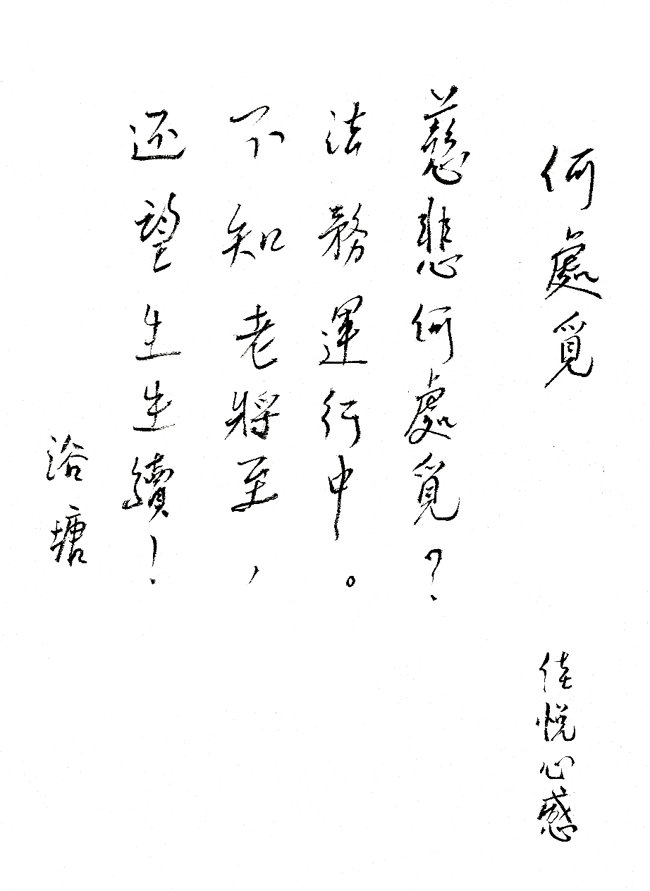 何處覓
佳悅心感
慈悲何處覓？
法務運行中。
不知老將至，
还望生生續！
浴塘